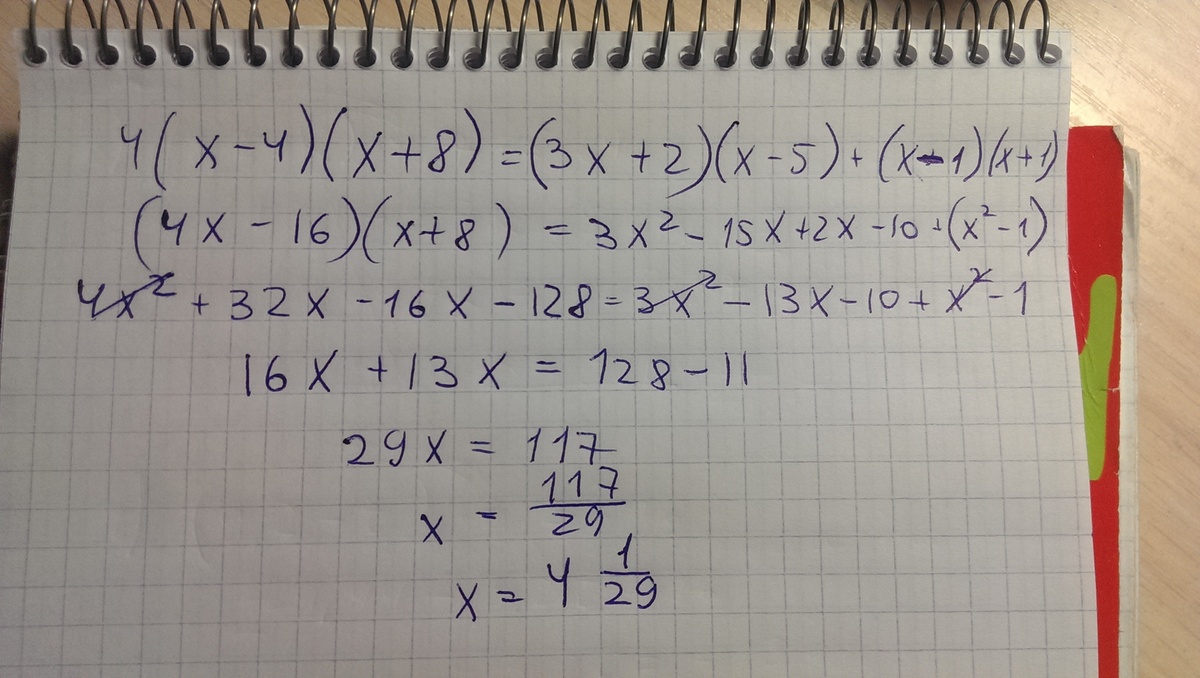 4(x-4)(x+8)=(3x+2)(x-5)+(x-1)(x+1)
(4x-16)(x+8)=3x²-15x+2x-10+(x²-1)
4x²+32x-16x-128=3x²-13x-10+x²-1
16x+13x=128-11
29x=117
x=117/29
x=4 1/29